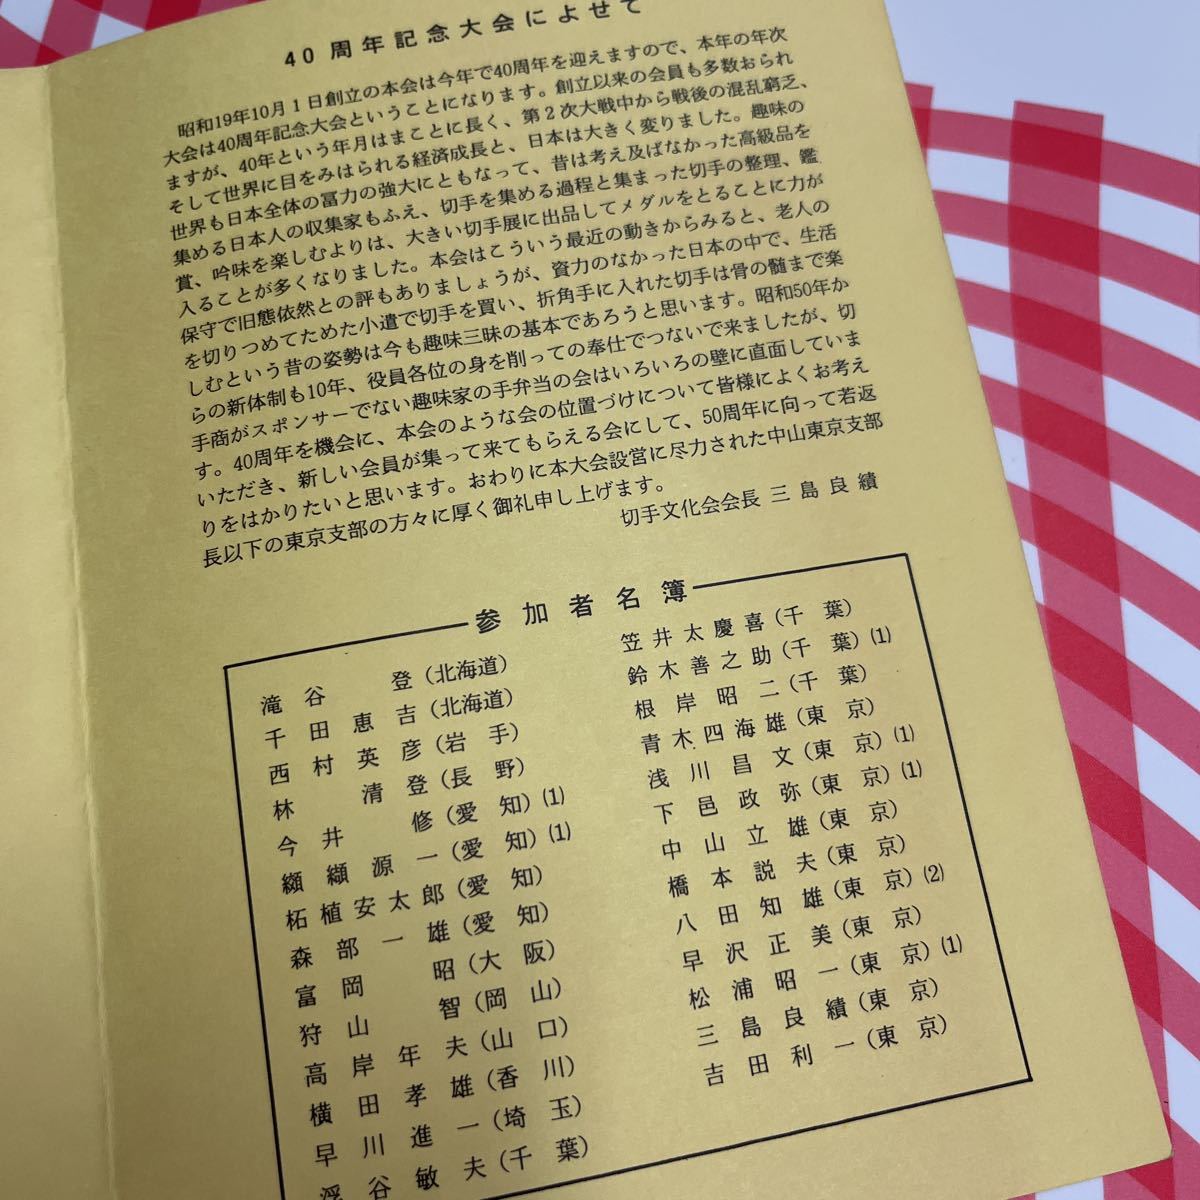 40周年記念大会によせて
昭和19年10月1日創立の本会は今年で40周年を迎えますので、本年の年次
大会は40周年記念大会ということになります。創立以来の会員も多数おられ
ますが、40年という年月はまことに長く、第2次大戦中から戦後の混乱窮乏、
そして世界に目をみはられる経済成長と、日本は大きく変りました。趣味の
世界も日本全体の冨力の強大にともなって、昔は考え及ばなかった高級品を
集める日本人の収集家もふえ、切手を集める過程と集まった切手の整理、鑑
賞、吟味を楽しむよりは、大きい切手展に出品してメダルをとることに力が
入ることが多くなりました。本会はこういう最近の動きからみると、老人の
保守で旧態依然との評もありましょうが、資力のなかった日本の中で、生活
を切りつめてためた小遣で切手を買い、折角手に入れた切手は骨の髄まで楽
しむという昔の姿勢は今も趣味三昧の基本であろうと思います。昭和50年か
らの新体制も10年、役員各位の身を削っての奉仕でつないで来ましたが、切
手商がスポンサーでない趣味家の手弁当の会はいろいろの壁に直面していま
す。40周年を機会に、本会のような会の位置づけについて皆様によくお考え
いただき、新しい会員が集って来てもらえる会にして、50周年に向って若返
りをはかりたいと思います。おわりに本大会設営に尽力された中山東京支部
長以下の東京支部の方々に厚く御礼申し上げます。
切手文化会会長 三島良績
参加者名簿
滝谷 登(北海道)
千田恵吉(北海道)
西村英彦(岩手)
林 清登(長野)
今井 修(愛知)(1)
纐纈源一(愛知)(1)
柘植安太郎(愛知)
森部一雄(愛知)
富岡 昭(大阪)
狩山 智(岡山)
高岸年夫(山口)
横田孝雄(香川)
早川進一(埼玉)
浮谷敏夫(千葉)
笠井太慶喜(千葉)
鈴木善之助(千葉)(1)
根岸昭二(千葉)
青木四海雄(東京)
浅川昌文(東京)(1)
下邑政弥(東京)(1)
中山立雄(東京)
橋本説夫(東京)
八田知雄(東京)(2)
早沢正美(東京)
松浦昭一(東京)(1)
三島良績(東京)
吉田利一(東京)